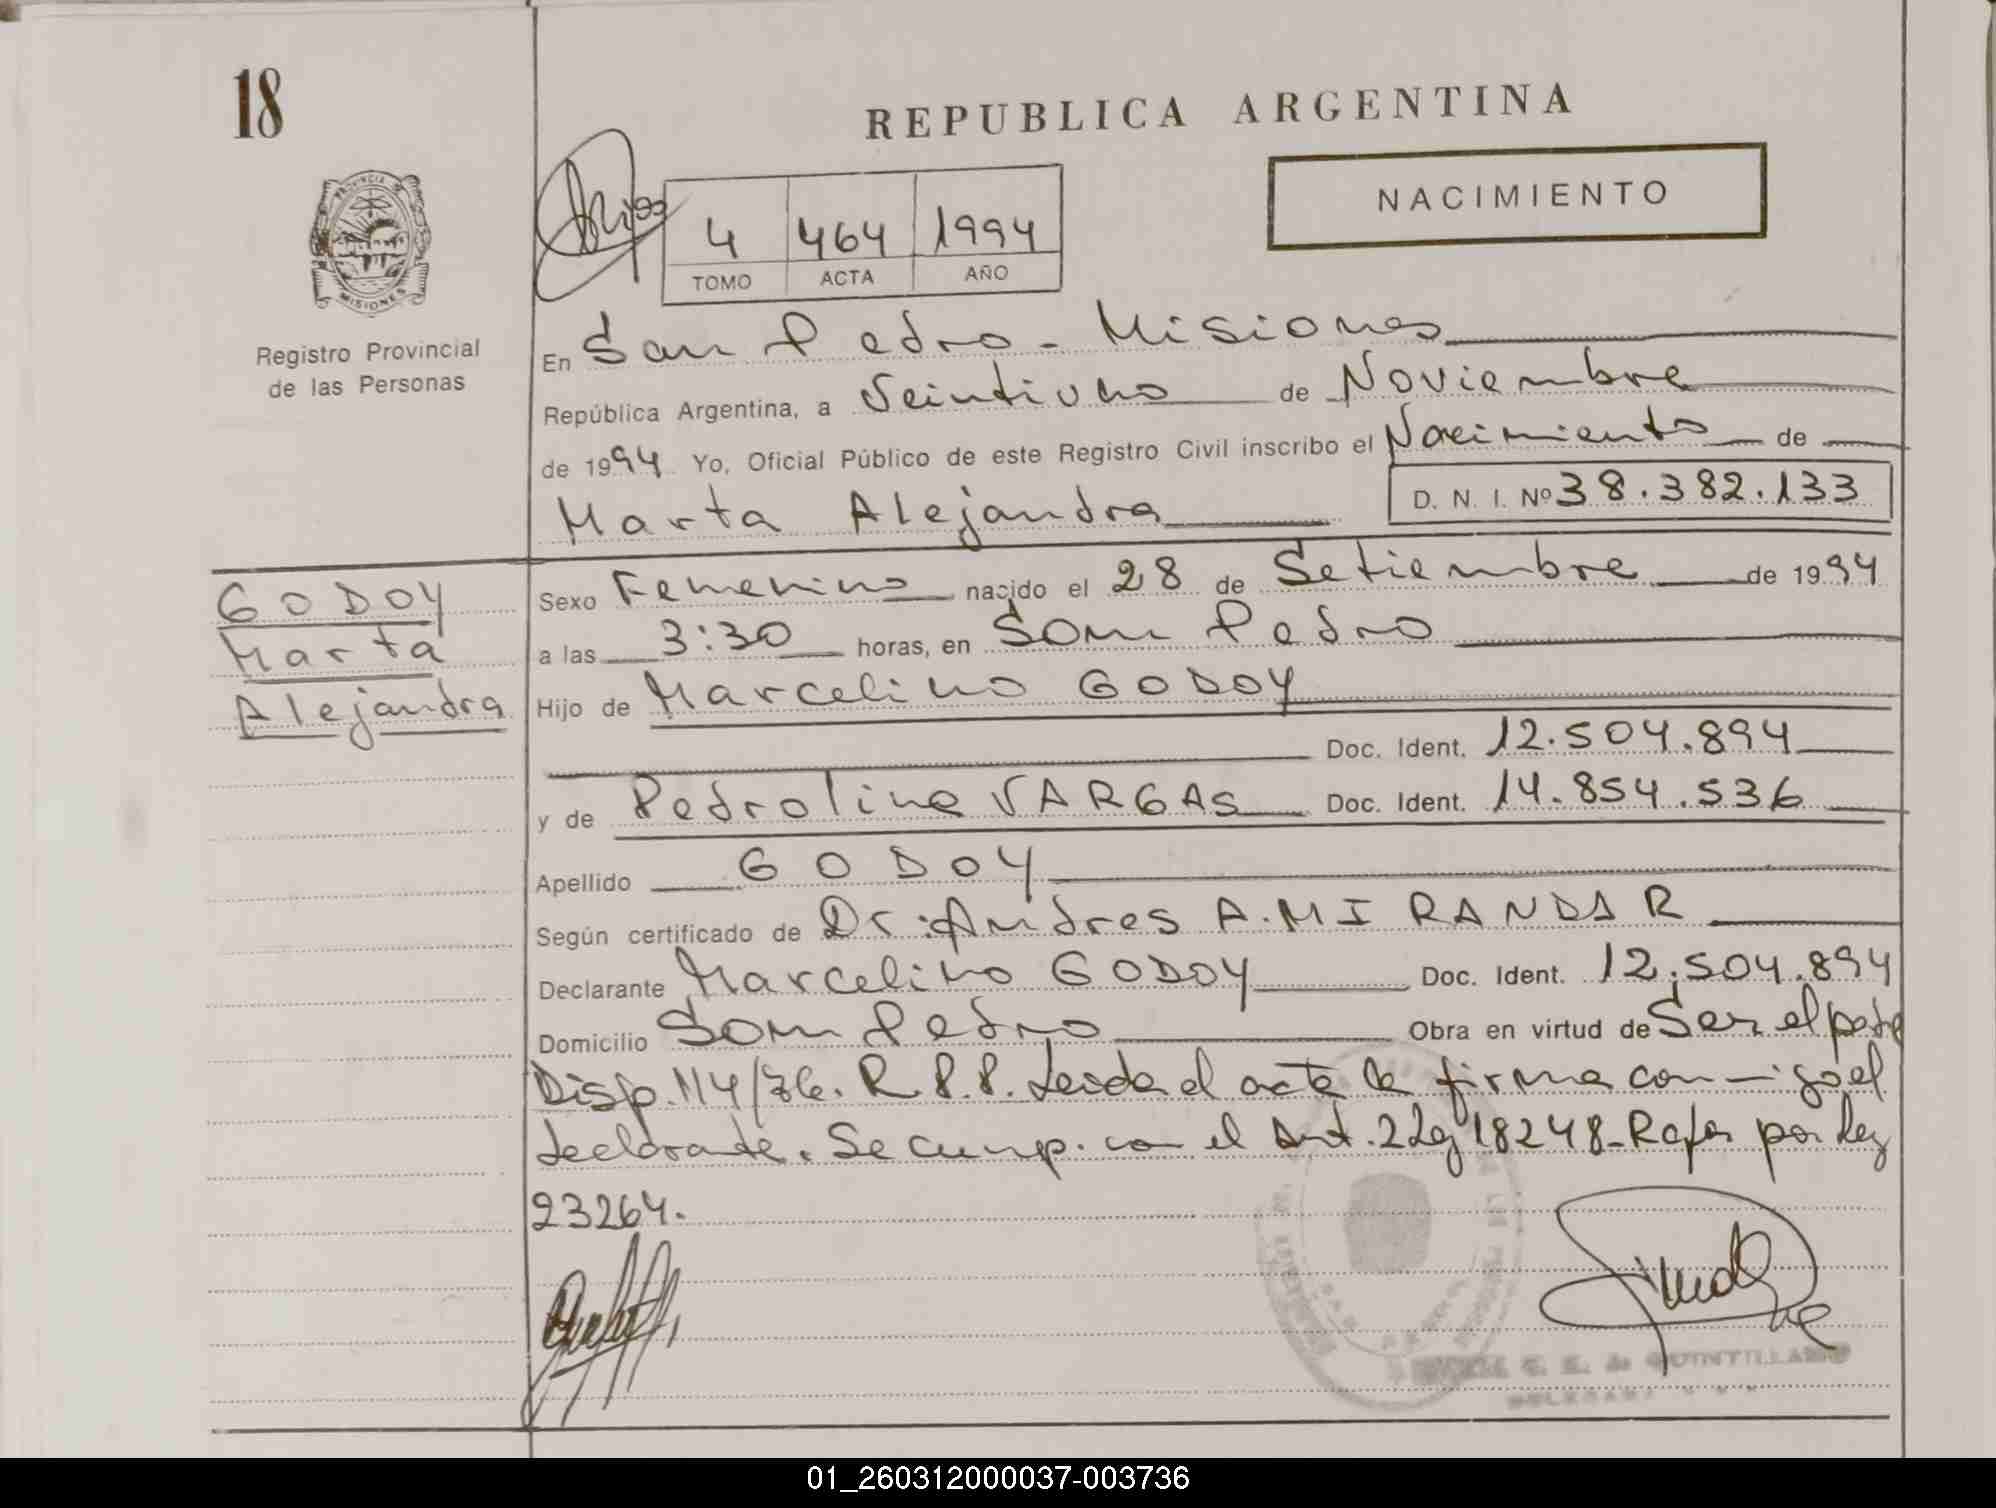 18
REPUBLICA ARGENTINA
NACIMIENTO
PROVINCIA DE
MISIONES
4 464 1994
TOMO ACTA AÑO
Registro Provincial
de las Personas
En San Pedro - Misiones
República Argentina, a Veintiuno de Noviembre
de 1994 Yo, Oficial Público de este Registro Civil inscribo el Nacimiento de
Marta Alejandra D. N. I. Nº 38.382.133
GODOY
Marta
Alejandra
Sexo Femenino nacido el 28 de Setiembre de 1994
a las 3:30 horas, en San Pedro
Hijo de Marcelino GODOY
Doc. Ident. 12.504.894
y de Pedrolina VARGAS Doc. Ident. 14.854.536
Apellido GODOY
Según certificado de Dr. Andres A. MIRANDA R
Declarante Marcelino GODOY Doc. Ident. 12.504.894
Domicilio San Pedro Obra en virtud de Ser el padre
Disp. 114/76. R.P.P. Leida el acta la firma conmigo el
declarante. Se cump. con el Art. 2 Ley 18248 - Refor por Ley
23264.
C. E. de QUINTILLAN
DELEGADA
01_260312000037-003736